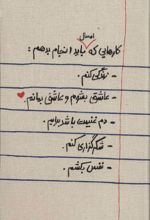 امسال
کارهایی که باید انجام بدهم :
- زندگی کنم.
- عاشق بشوم و عاشق بمانم.
- دم غنیمت باشد برایم.
- شکرگزاری کنم.
- نفس بکشم.